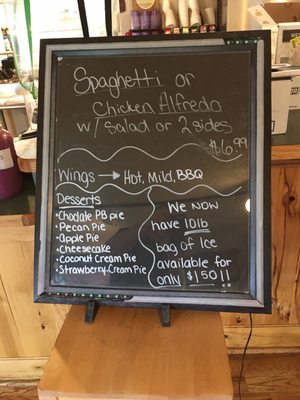 Spaghetti or
Chicken Alfredo
w/ salad or 2 sides
$6.99
Wings → Hot, Mild, BBQ
Desserts
• Choclate PB pie
• Pecan Pie
• Apple Pie
• Cheesecake
• Coconut Cream Pie
• Strawberry Cream Pie
We now
have 10lb
bag of Ice
available for
only $1.50!!